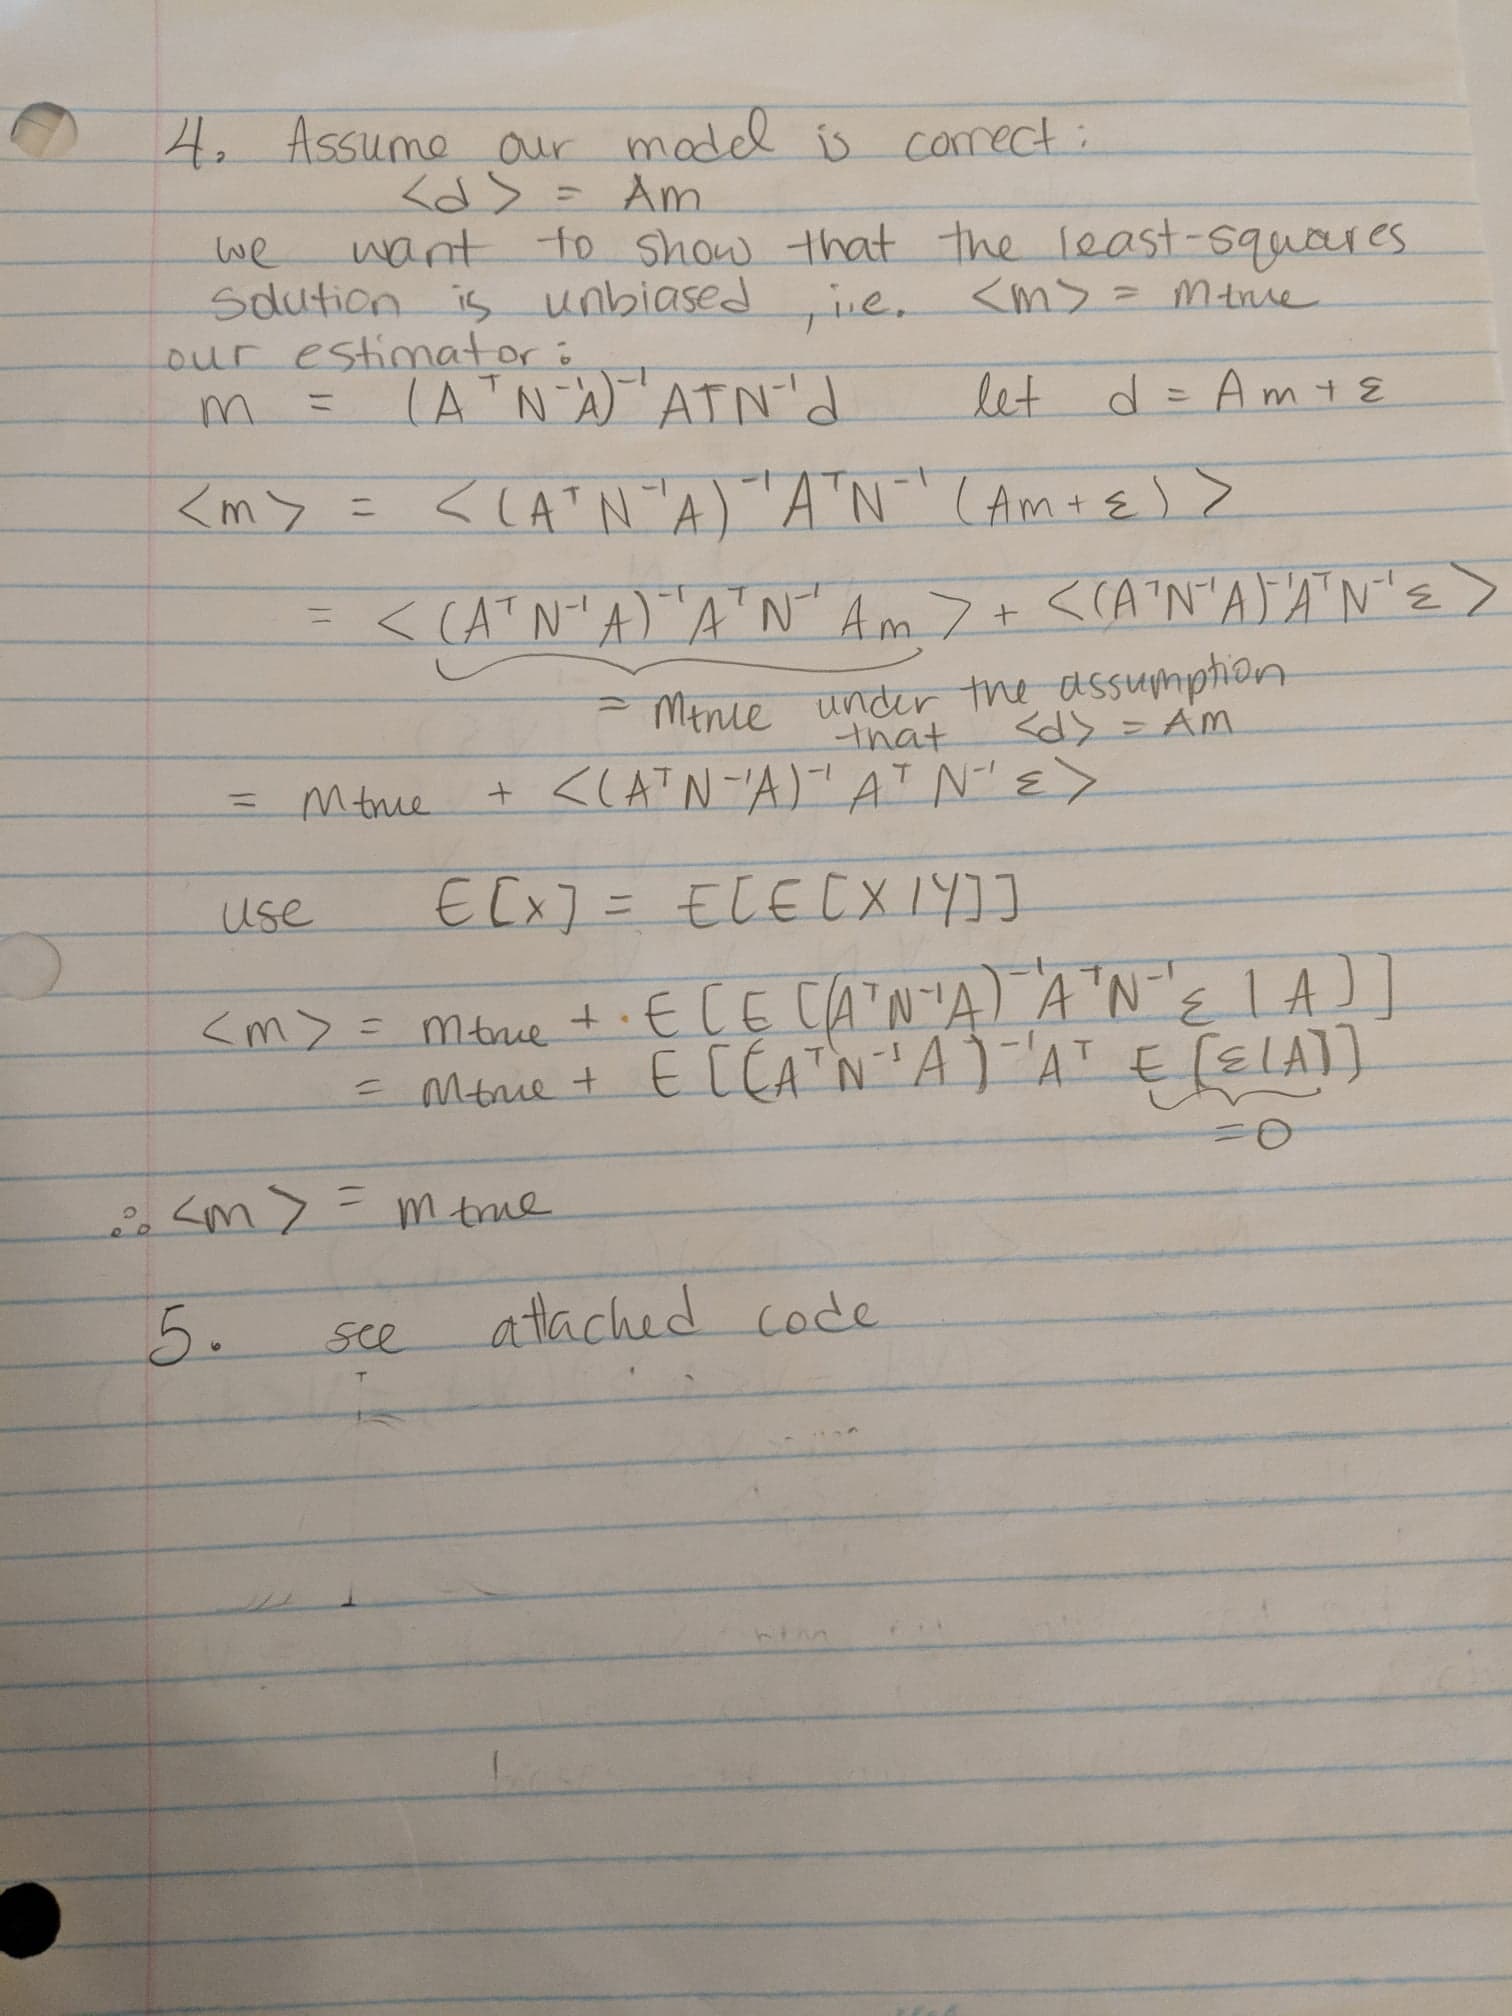 4. Assume our model is correct:
<d> = Am
we want to show that the least-squares
solution is unbiased, i.e. <m> = mtrue
our estimator:
m = (AᵀN⁻¹A)⁻¹AᵀN⁻¹d let d = Am + ε
<m> = <(AᵀN⁻¹A)⁻¹AᵀN⁻¹(Am+ε)>
= <(AᵀN⁻¹A)⁻¹AᵀN⁻¹Am> + <(AᵀN⁻¹A)⁻¹AᵀN⁻¹ε>
= mtrue under the assumption
that <d> = Am
= mtrue + <(AᵀN⁻¹A)⁻¹AᵀN⁻¹ε>
use E[X] = E[E[X|Y]]
<m> = mtrue + E[E[(AᵀN⁻¹A)⁻¹AᵀN⁻¹ε|A]]
= mtrue + E[(AᵀN⁻¹A)⁻¹Aᵀ E[ε|A]]
=0
∴ <m> = mtrue
5. see attached code